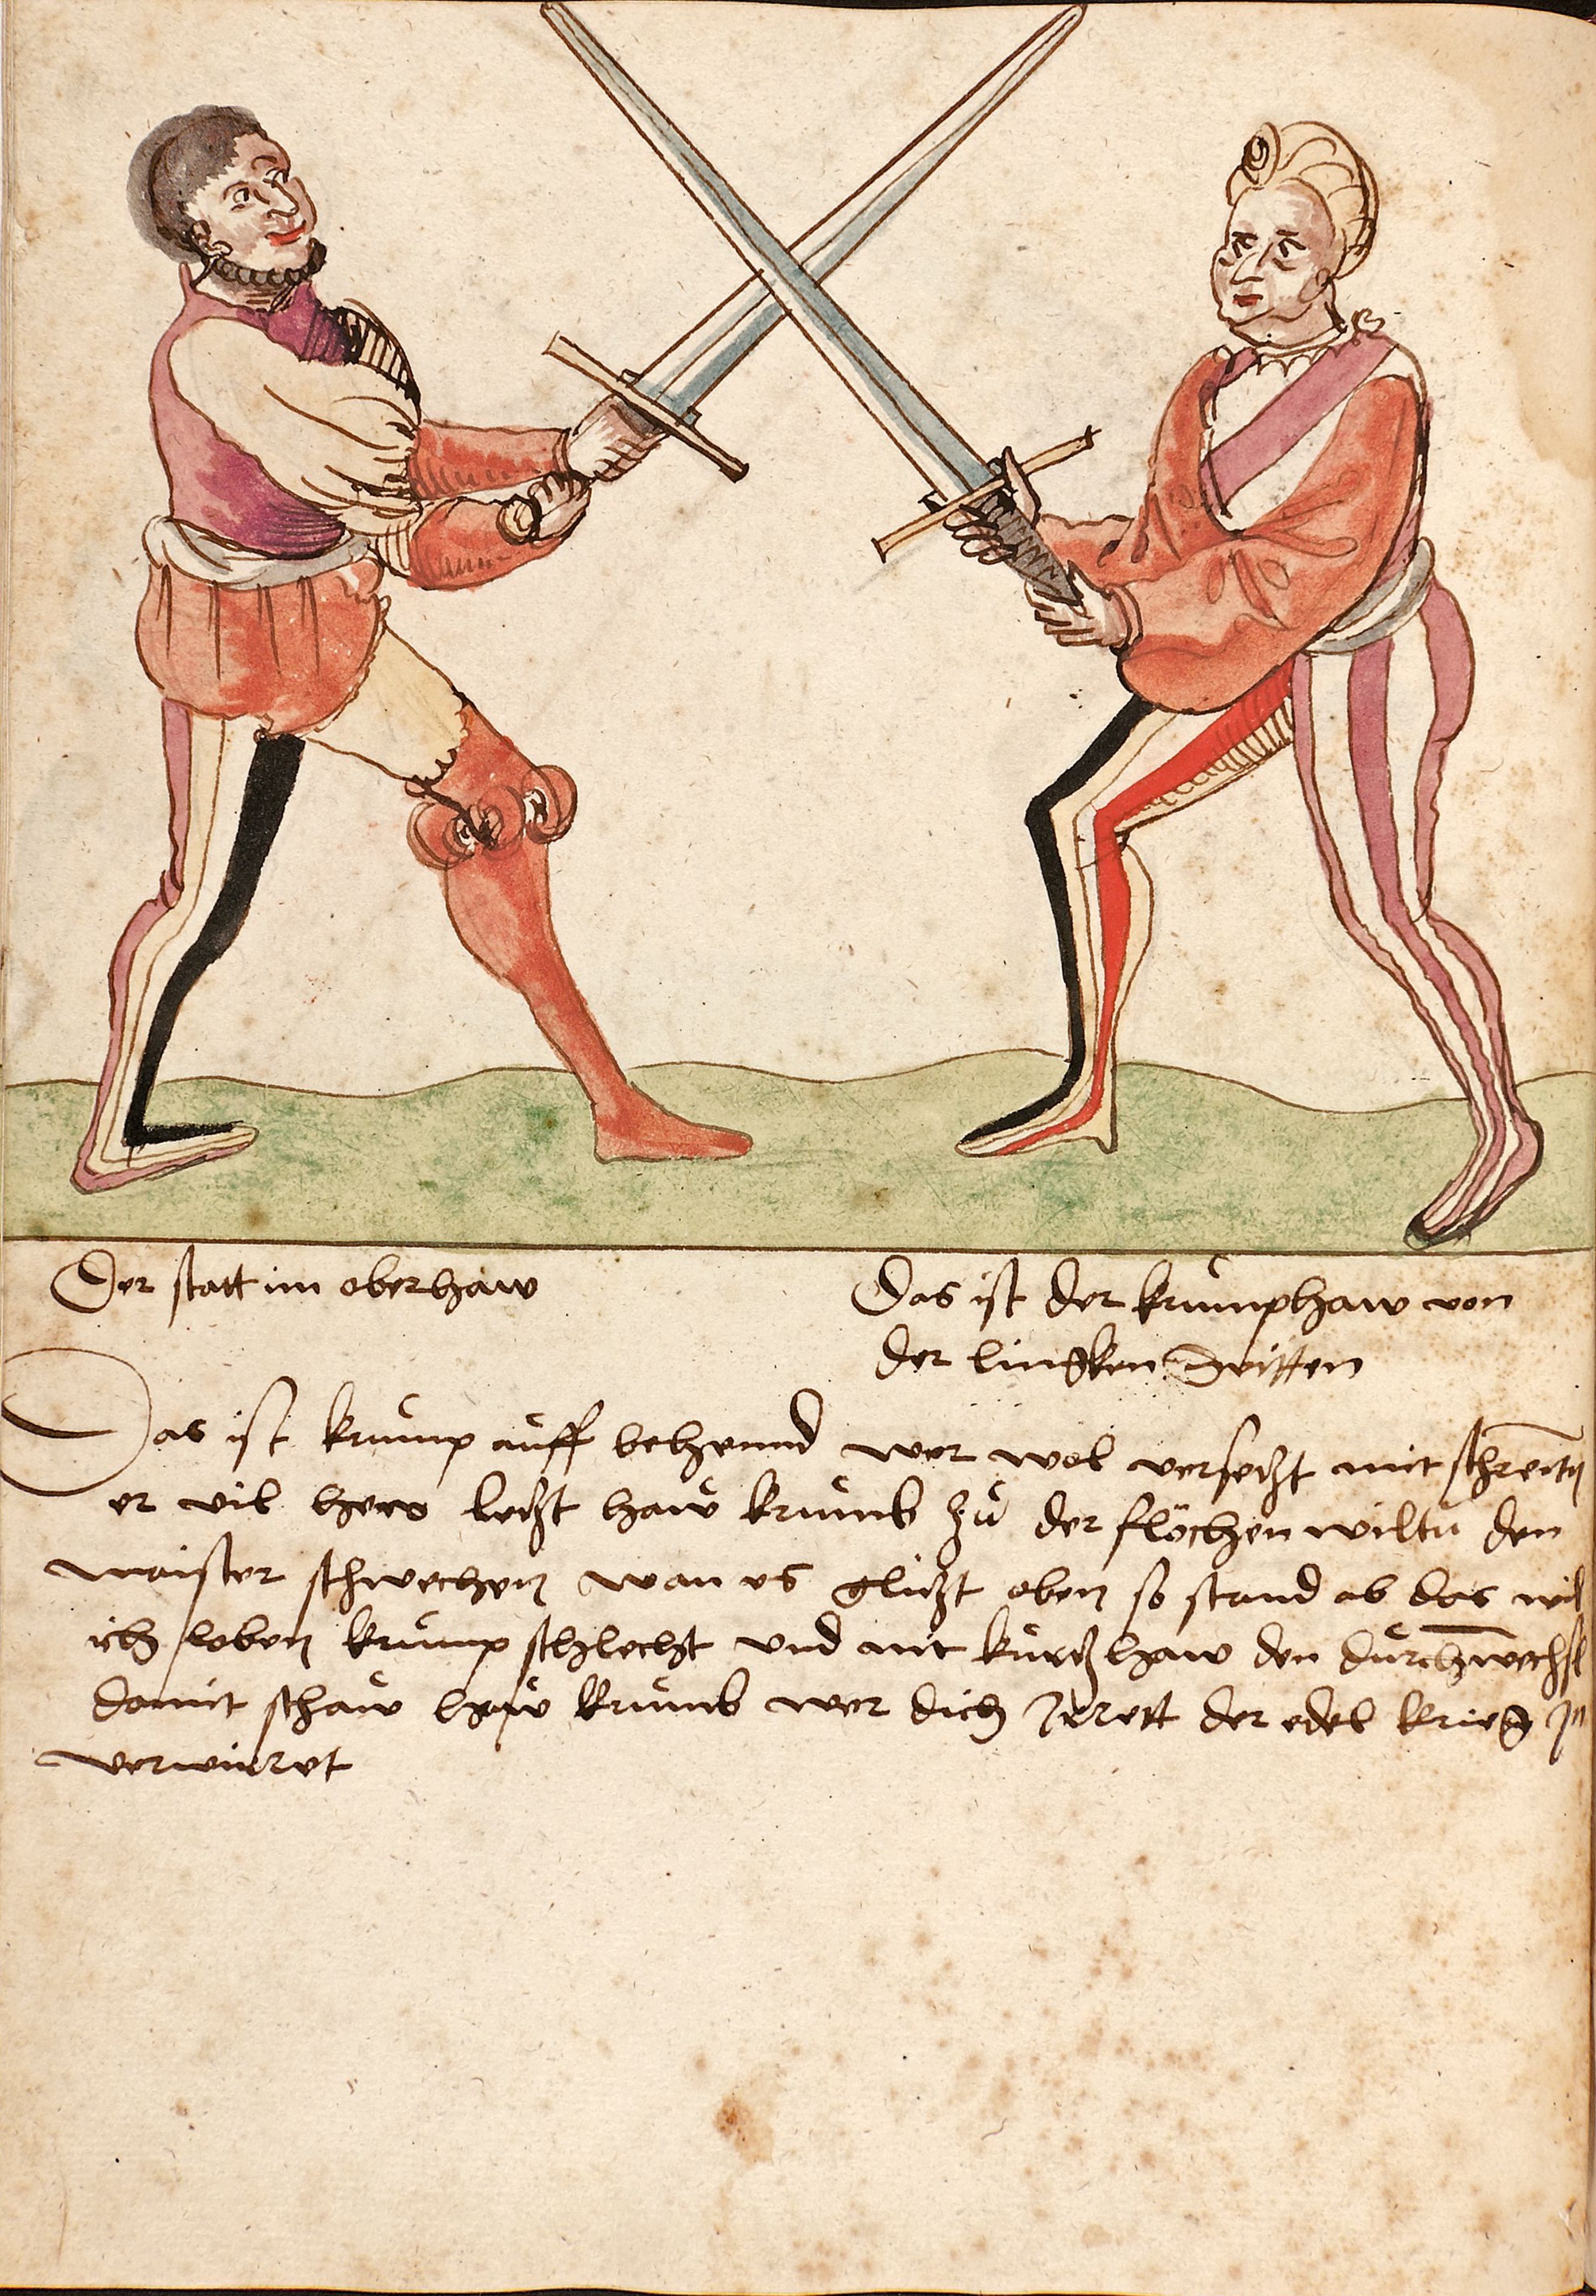 Der statt im oberhaw
Das ist der krumphaw von
der lingken Seitten
Das ist krump auff behennd wer wol versetzt mit schreittn
er vil hew letzt haw krumb zu der flöchen wiltu den
maister schwechen wan es glutzt oben so stand ab das wil
ich loben krump schlecht und mit kurtz haw den durchwechsl
damit schaw haw krumb wer dich Irrett der edel krieg In
verwirret